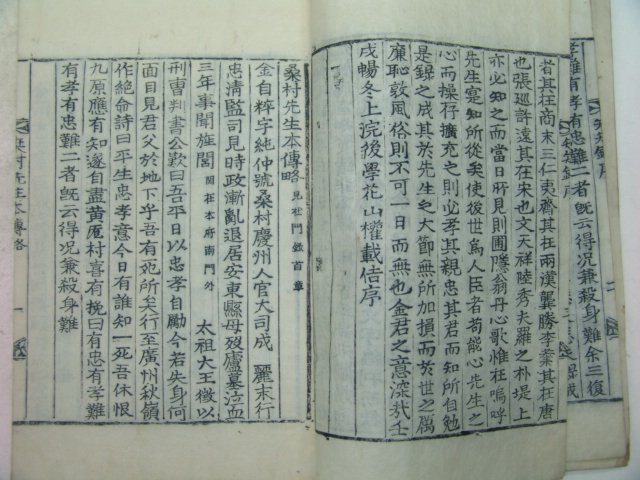 有孝有忠難二者旣云得況兼殺身難余三復
者其在商末三仁夷齊其在兩漢龔勝李業其在唐
也張巡許遠其在宋也文天祥陸秀夫羅之朴堤上
亦必知之而當日所見則圃隱翁丹心歌惟在嗚呼
先生寔知所從矣使後世爲人臣者苟能心先生之
心而操存擴充之則必孝其親忠其君而知所自勉
是錄之成其於先生之大節無所加損而於世之厲
廉恥敦風俗則不可一日而無也金君之意深哉壬
戌暢冬上浣後學花山權載佶序
桑村先生本傳略 見杜門錄首章
金自粹字純仲號桑村慶州人官大司成 麗末行
忠淸監司見時政漸亂退居安東縣母歿廬墓泣血
三年事聞旌閭 閭在本府南門外 太祖大王徵以
刑曺判書公歎曰吾平日以忠孝自勵今若失身何
面目見君父於地下乎吾有死所矣行至廣州秋嶺
作絶命詩曰平生忠孝意今日有誰知一死吾休恨
九原應有知遂自盡黃厖村喜有挽曰有忠有孝難
有孝有忠難二者旣云得況兼殺身難
桑村先生本傳略 一